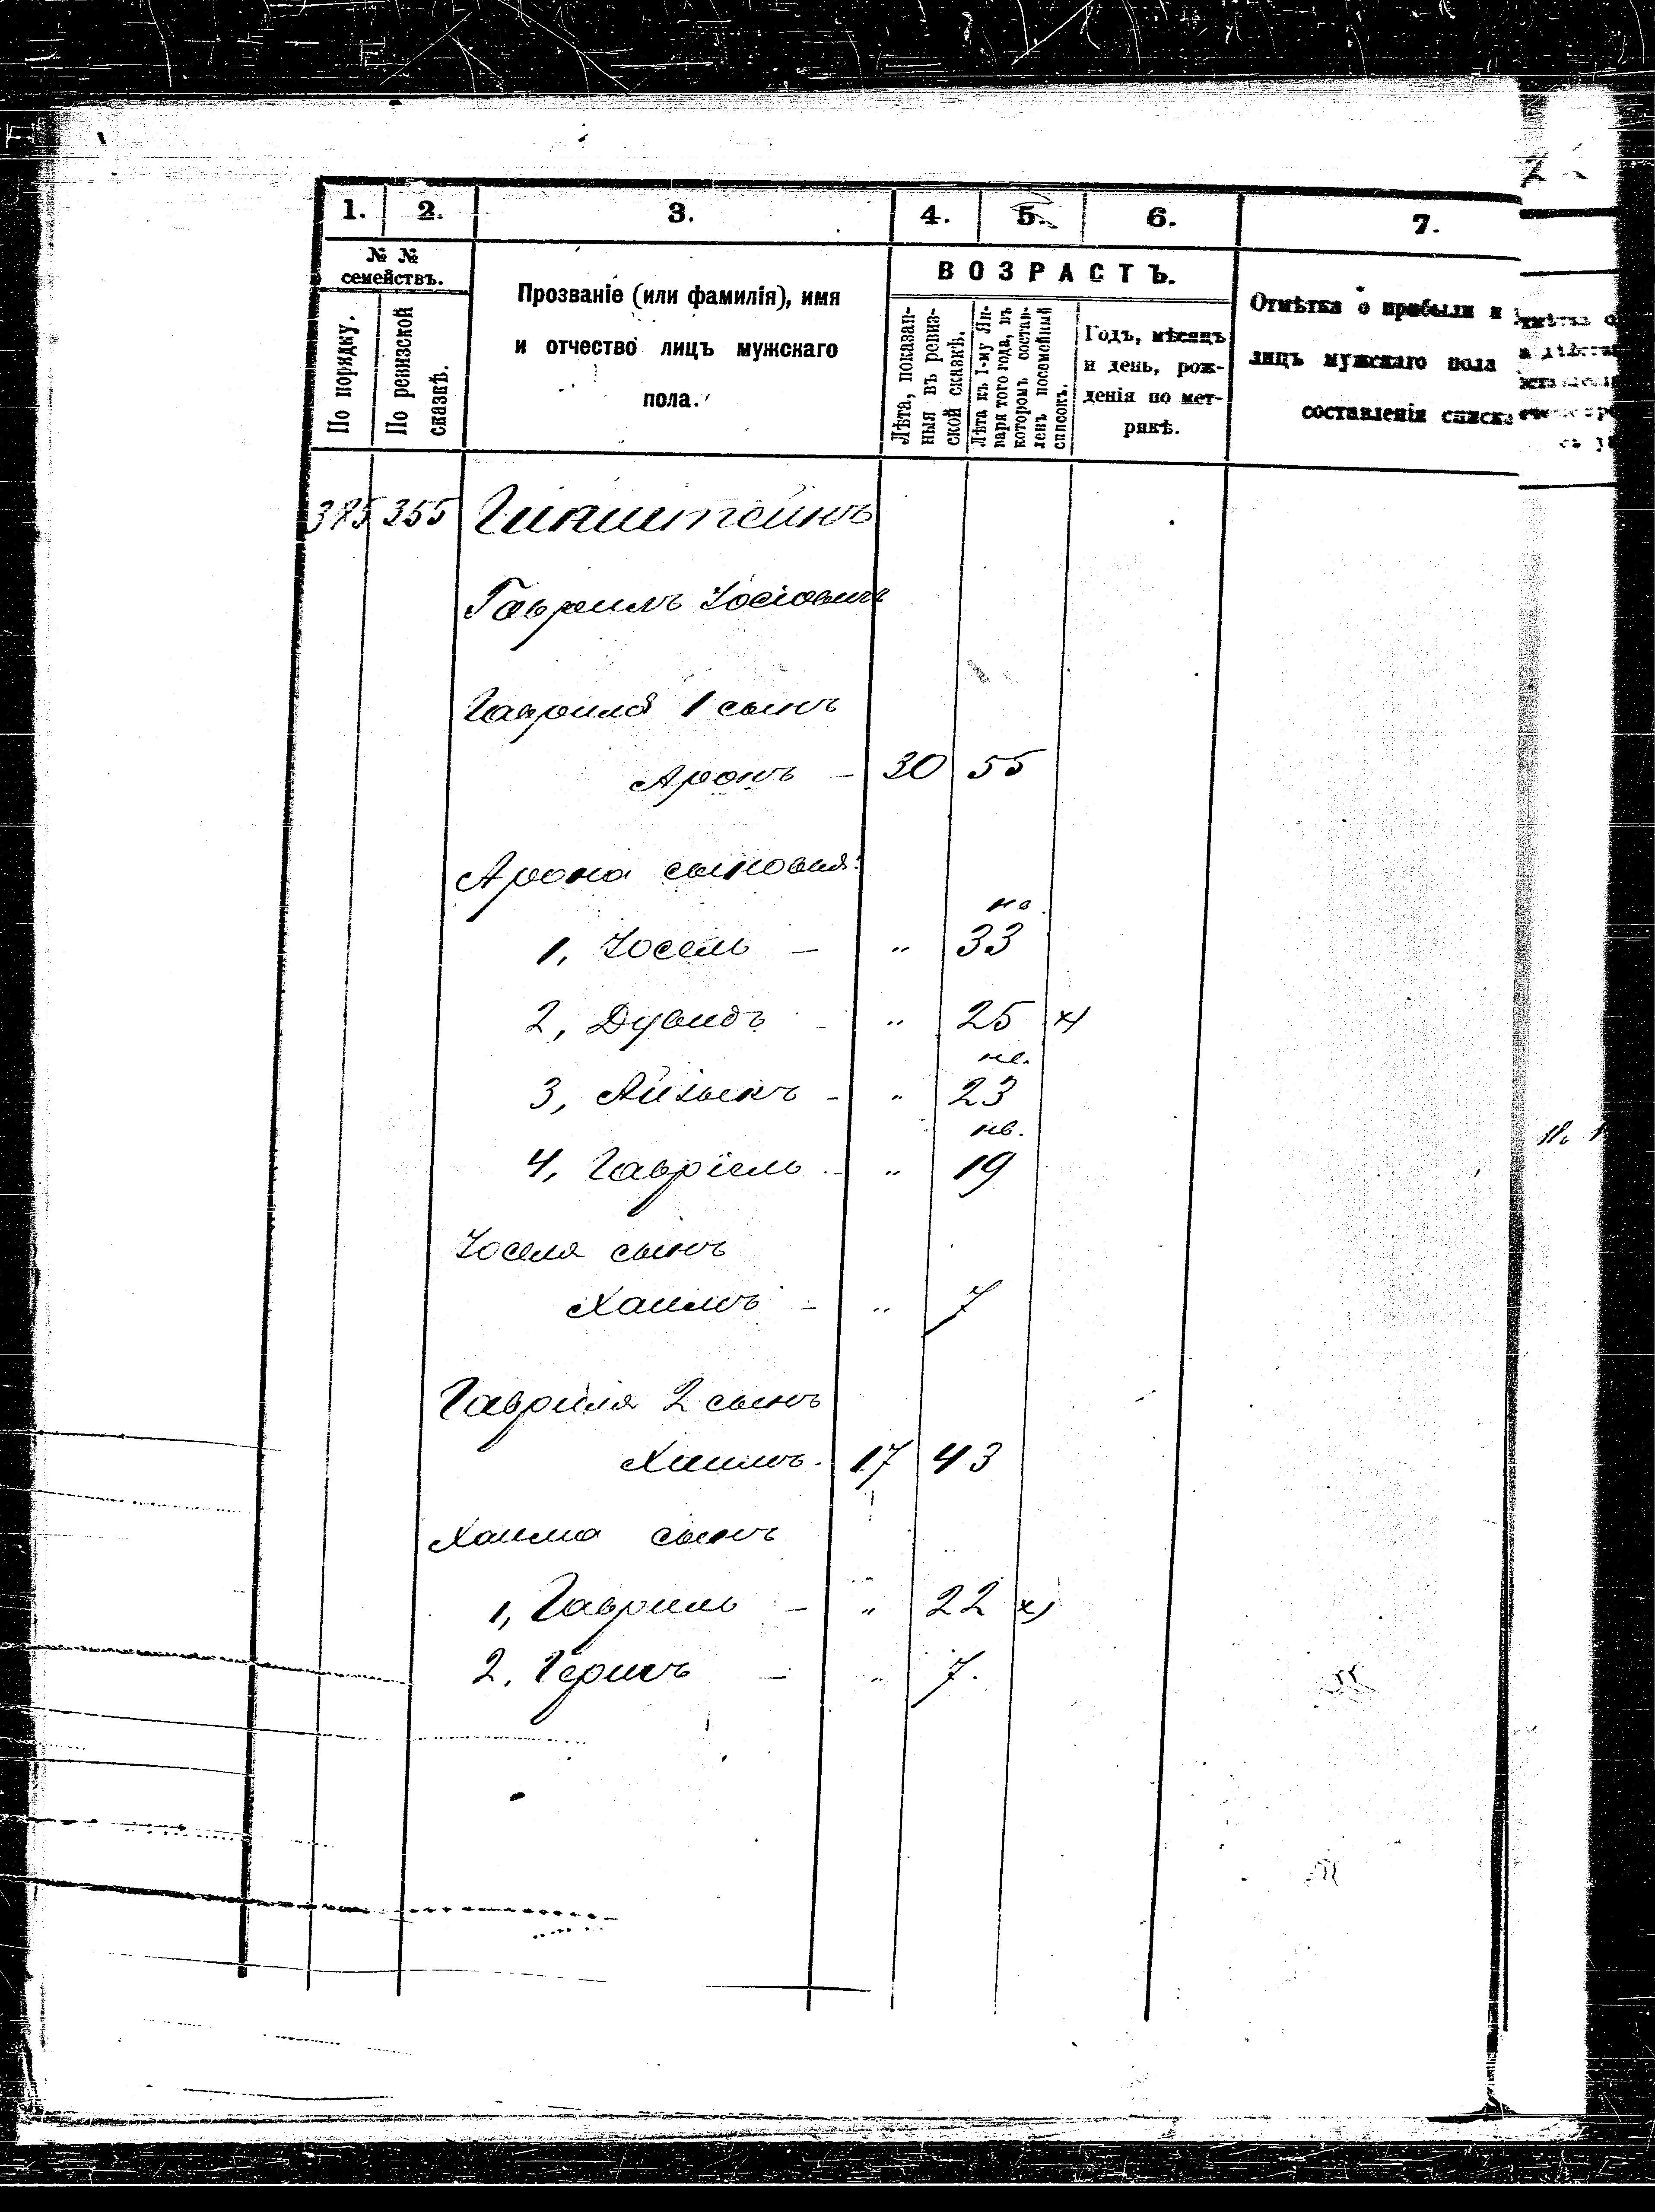 1. 2. 3. 4. 5. 6. 7.
№ №
семействъ.
По порядку.
По ревизской
сказкѣ.
Прозваніе (или фамилія), имя
и отчество лицъ мужскаго
пола.
ВОЗРАСТЪ.
Лѣта, показан-
ныя въ ревиз-
ской сказкѣ.
Лѣта къ 1-му Ян-
варя того года, въ
которомъ состав-
ленъ посемейный
списокъ.
Годъ, мѣсяцъ
и день, рож-
денія по мет-
рикѣ.
Отмѣтка о прибыли и
лицъ мужскаго пола
составленія списка
385 355
Гавріилъ Іосіовичъ
Гавріила 1 сынъ
Аронъ - 30 55
Арона сыновья:
1, Іосель - " 33
2, Дувидъ - " 25 х)
3, Айзыкъ - " 23
нв.
4, Гавріель - " 19
Іоселя сынъ
Хаимъ - " 7
Гавріила 2 сынъ
Хаимъ. 17 43
Хаима сынъ
1, Гавріиль - " 22 х)
2. Гершъ - " 7.